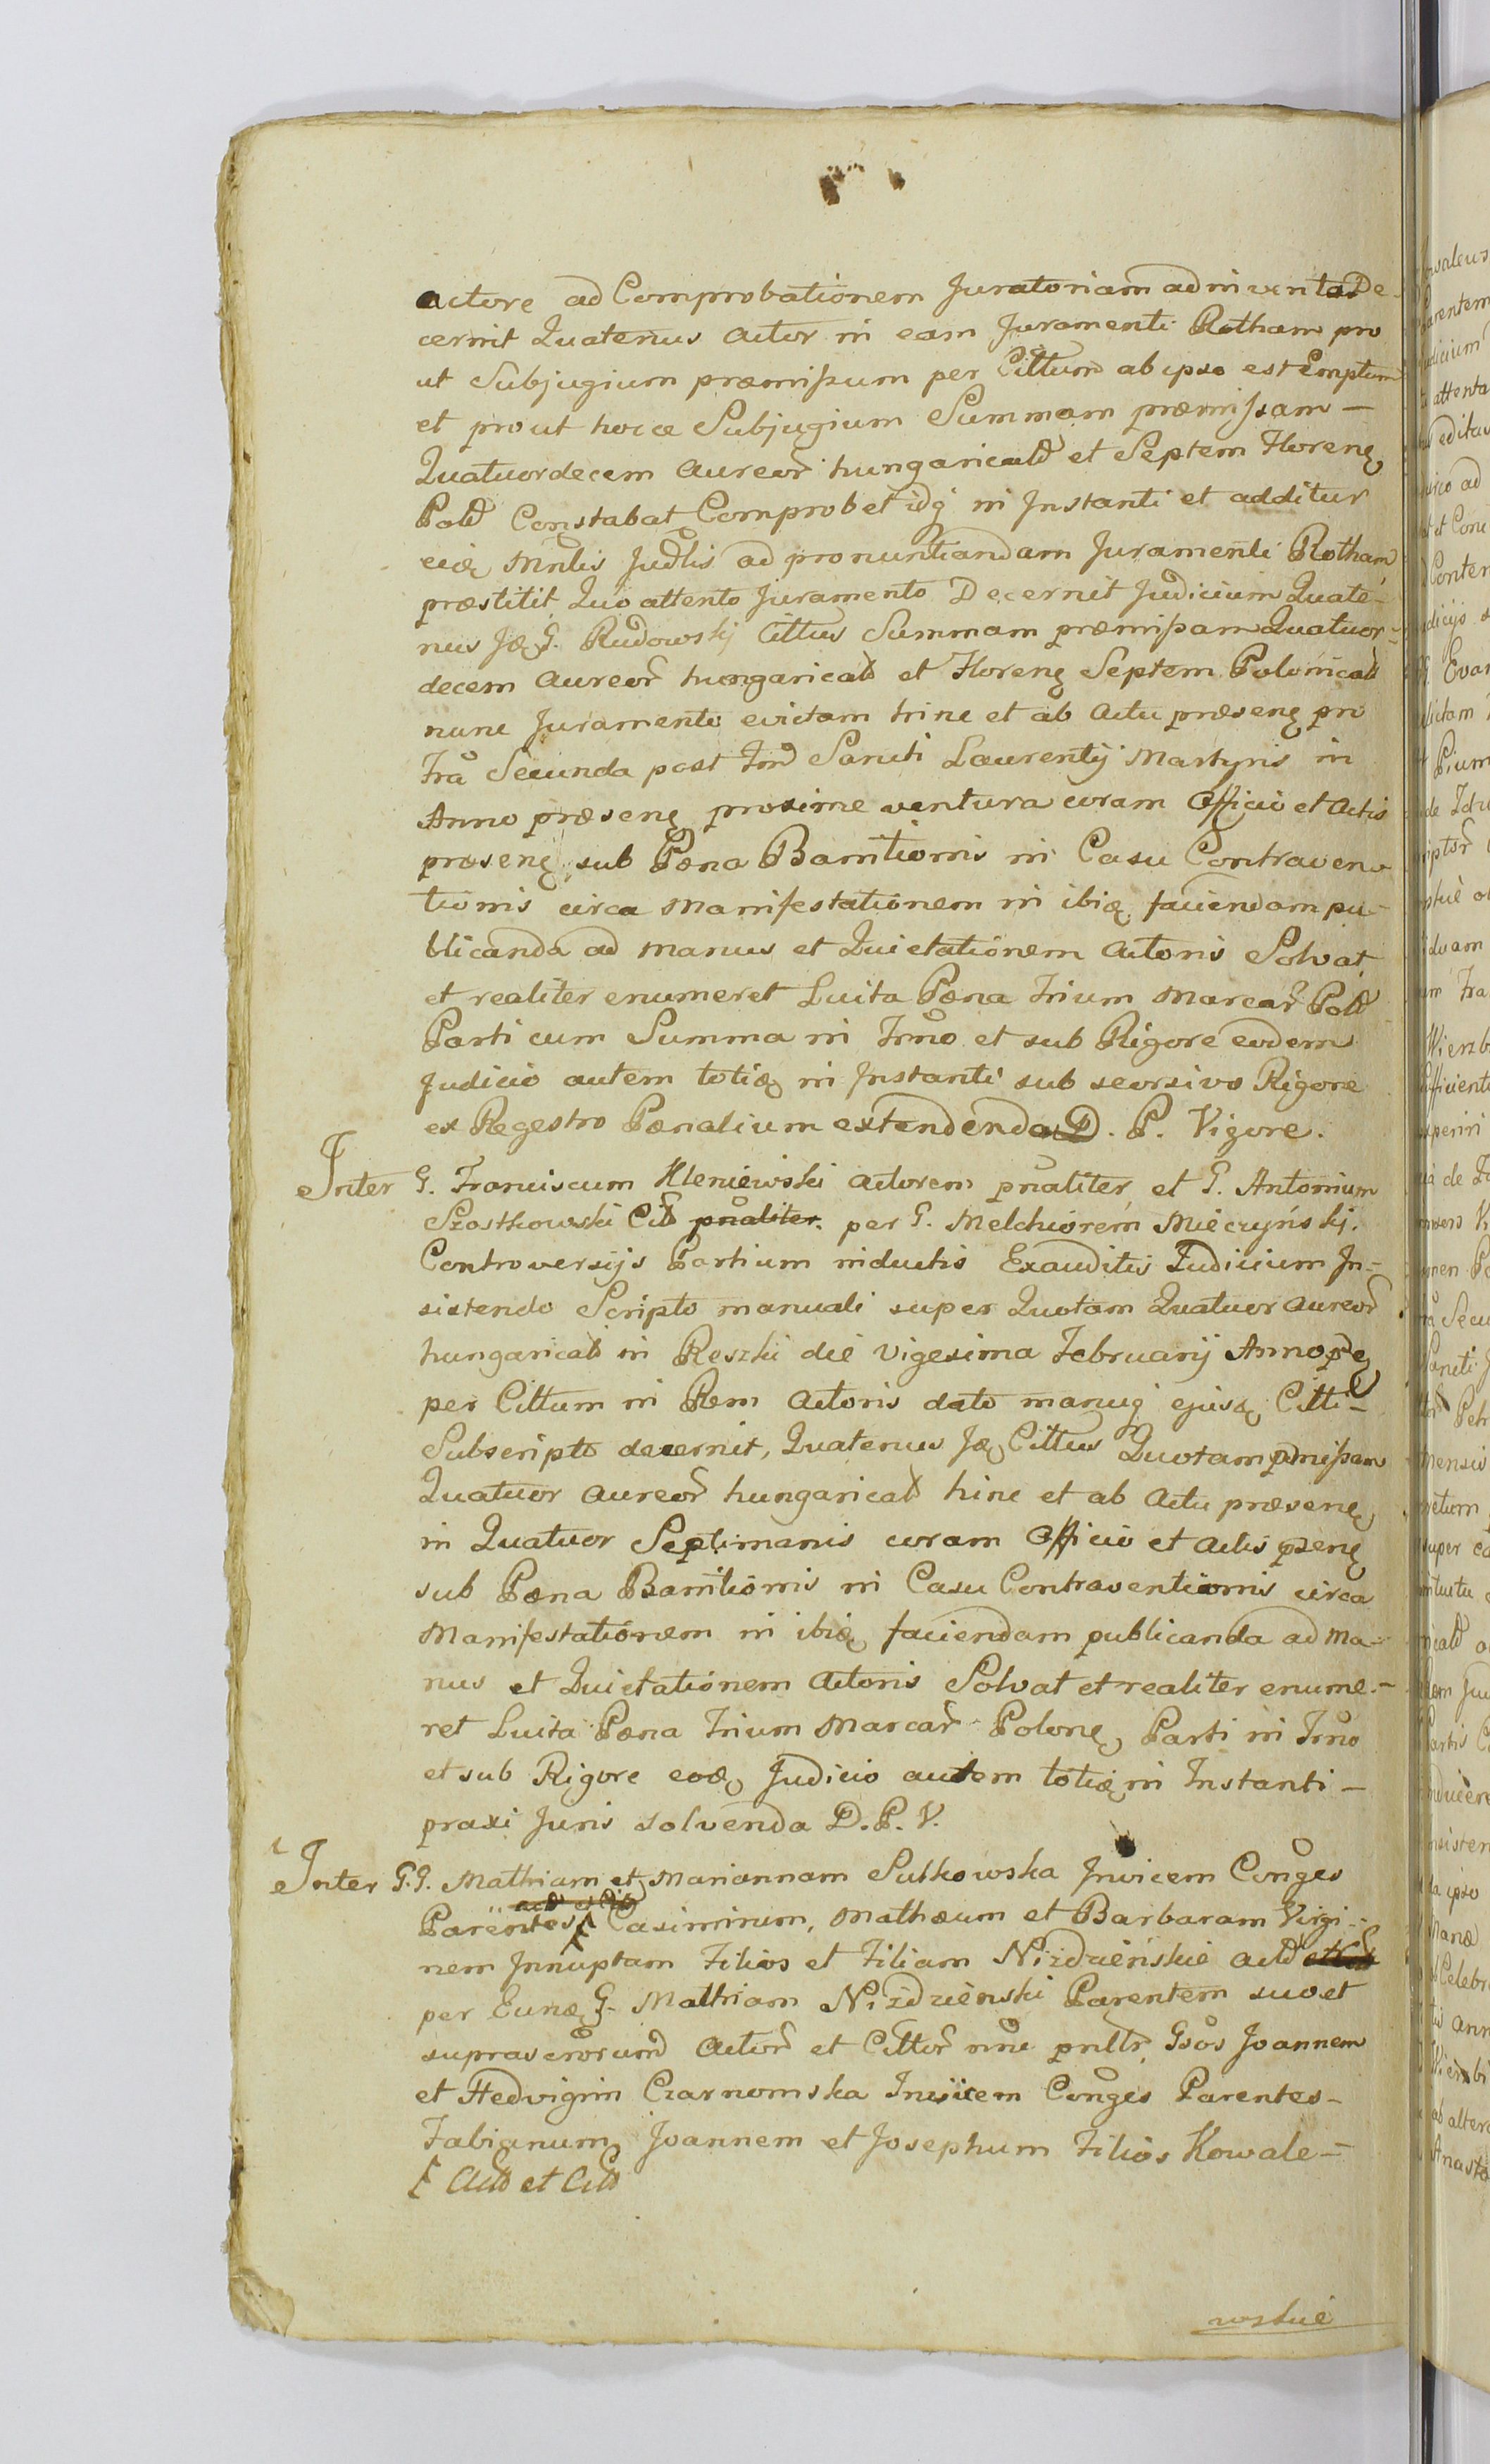 actore ad Comprobationem Juratoriam adinventa De-
cernit Quatenus Actor in eam Juramenti Rotham pro
ut Subjugium præmissum per Cittum ab ipso est Emptum
et prout hocce Subjugium Summam præmissam —
Quatuordecem Aureor hungarical et Septem Floren
Pol Constabat Comprobet idq in Instanti et additur
eiq Mnlis Judlis ad pronuntiandam Juramenti Rotham
præstitit, Quo attento Juramento Decernit Judicium Quate-
nus Jq G. Rudowskj Cittus Summam præmissam Quatuor-
decem Aureor hungarical et Floren Septem Polonical
nunc Juramento evictam hinc et ab Actu præsen pro
Fra Secunda post Fm Sancti Laurentij Martyris in
Anno præsen proxime ventura coram Officio et Actis
præsen, sub Pæna Bannitionis in Casu Contraven-
tionis circa Manifestationem in ibiq faciendam pu-
blicanda ad manus et Quietationem Actoris Solvat
et realiter enumeret Luita Pæna Trium Marcar Pol
Parti cum Summa in Trno et sub Rigore eodem
Judicio autem totiq in Instanti sub seorsivo Rigore
ex Regestro Pænalium extendenda D. P. Vigore.
Inter G. Franciscum Kleniewski Actorem pnaliter et G. Antonium
Szostkowski Cit pnaliter. per G. Melchiorem Mieczyńskj.
Controversijs Partium inductis Exauditis Judicium In-
sistendo Scripto manuali super Quotam Quatuor Aureor
hungarical in Reszki die Vigesima Februarij Anno pq
per Cittum in Rem Actoris dato manuq ejusq Citti
Subscripto decernit, Quatenus Jq Cittus Quotam pmissam
Quatuor Aureor hungarical hinc et ab Actu præsen
in Quatuor Septimanis coram Officio et Actis pzen
sub Pæna Bannitionis in Casu Contraventionis circa
Manifestationem in ibiq faciendam publicanda ad Ma-
nus et Quietationem Actoris Solvat et realiter enume-
ret Luita Pæna Trium Marcar Polon Parti in Trno
et sub Rigore eoq Judicio autem totiq in Instanti —
praxi Juris solvenda D. P. V.
Inter G.G. Mathiam et Mariannam Sulkowska Invicem Conges
act et Cit
Parentes Casimirum, Mathæum et Barbaram Virgi-
nem Innuptam Filios et Filiam Nizdzieńskie Act et Cit
per Eunq G. Mathiam Nizdzieński Parentem suo et
supraserorum Actor et Cittor nne pnltr, Gsos Joannem
et Hedvigim Czarnomska Invicem Conges Parentes -
Fabianum, Joannem et Josephum Filios Kowale-
Act et Cit
wskie